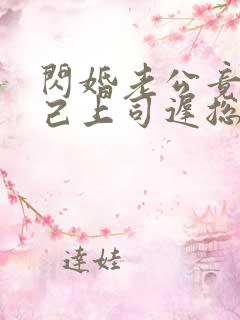 閃婚老公竟
己上司遲總
達娃